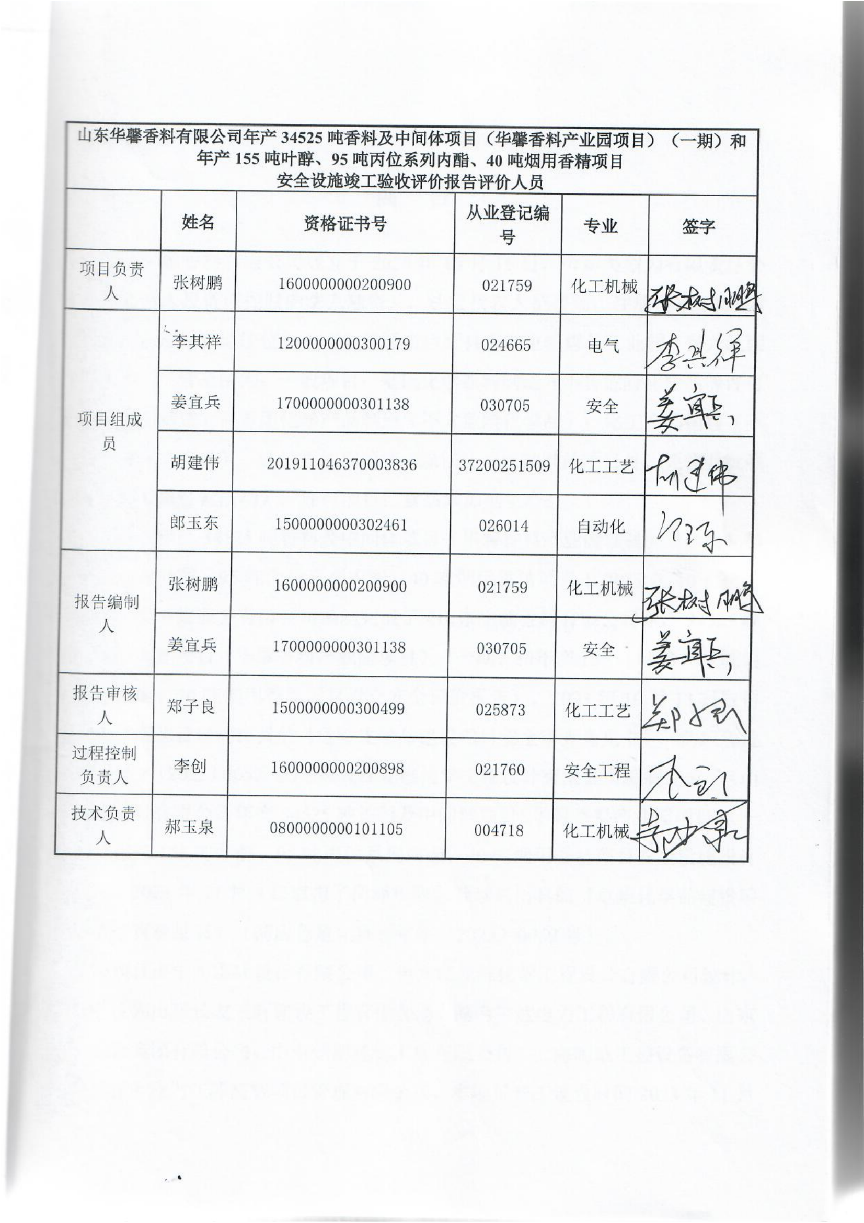 山东华馨香料有限公司年产 34525 吨香料及中间体项目（华馨香料产业园项目）（一期）和
年产 155 吨叶醇、95 吨丙位系列内酯、40 吨烟用香精项目
安全设施竣工验收评价报告评价人员
姓名 资格证书号 从业登记编号 专业 签字
项目负责人 张树鹏 1600000000200900 021759 化工机械 张树鹏
项目组成员 李其祥 1200000000300179 024665 电气 李其祥
姜宜兵 1700000000301138 030705 安全 姜宜兵
胡建伟 201911046370003836 37200251509 化工工艺 胡建伟
郎玉东 1500000000302461 026014 自动化
报告编制人 张树鹏 1600000000200900 021759 化工机械 张树鹏
姜宜兵 1700000000301138 030705 安全 姜宜兵
报告审核人 郑子良 1500000000300499 025873 化工工艺 郑子良
过程控制负责人 李创 1600000000200898 021760 安全工程 李创
技术负责人 郝玉泉 0800000000101105 004718 化工机械